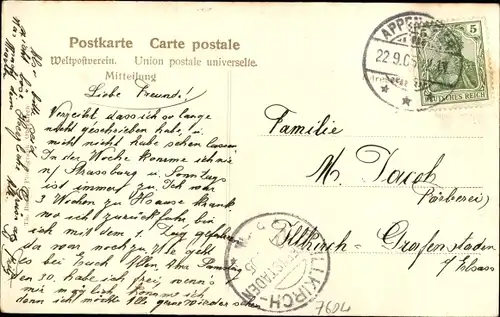 Postkarte Carte postale
Weltpostverein. Union postale universelle.
Mitteilung
Liebe Freunde!
Verzeiht dass ich so lange
nicht geschrieben habe, u.
mich nicht habe sehen lassen
In der Woche komme ich nie
n/ Strassburg u. Sonntags
ist immer zu. Ich war
3 Wochen zu Hause krank
wo ich zurückfuhr bin
ich mit dem 1. Zug gefahren
da war noch zu. Wie geht
es bei Euch Allen. Am Samstag
den 30. habe ich frei, wenn's
mir möglich komme ich
dann ich möchte Alle gerne wieder sehen
APPENW
22.9.05
5
DEUTSCHES REICH
Familie
M. Jacob
(Färberei)
Illkirch-Grafenstaden
i/ Elsass
ILLKIRCH-
GRAFENSTADEN
7604